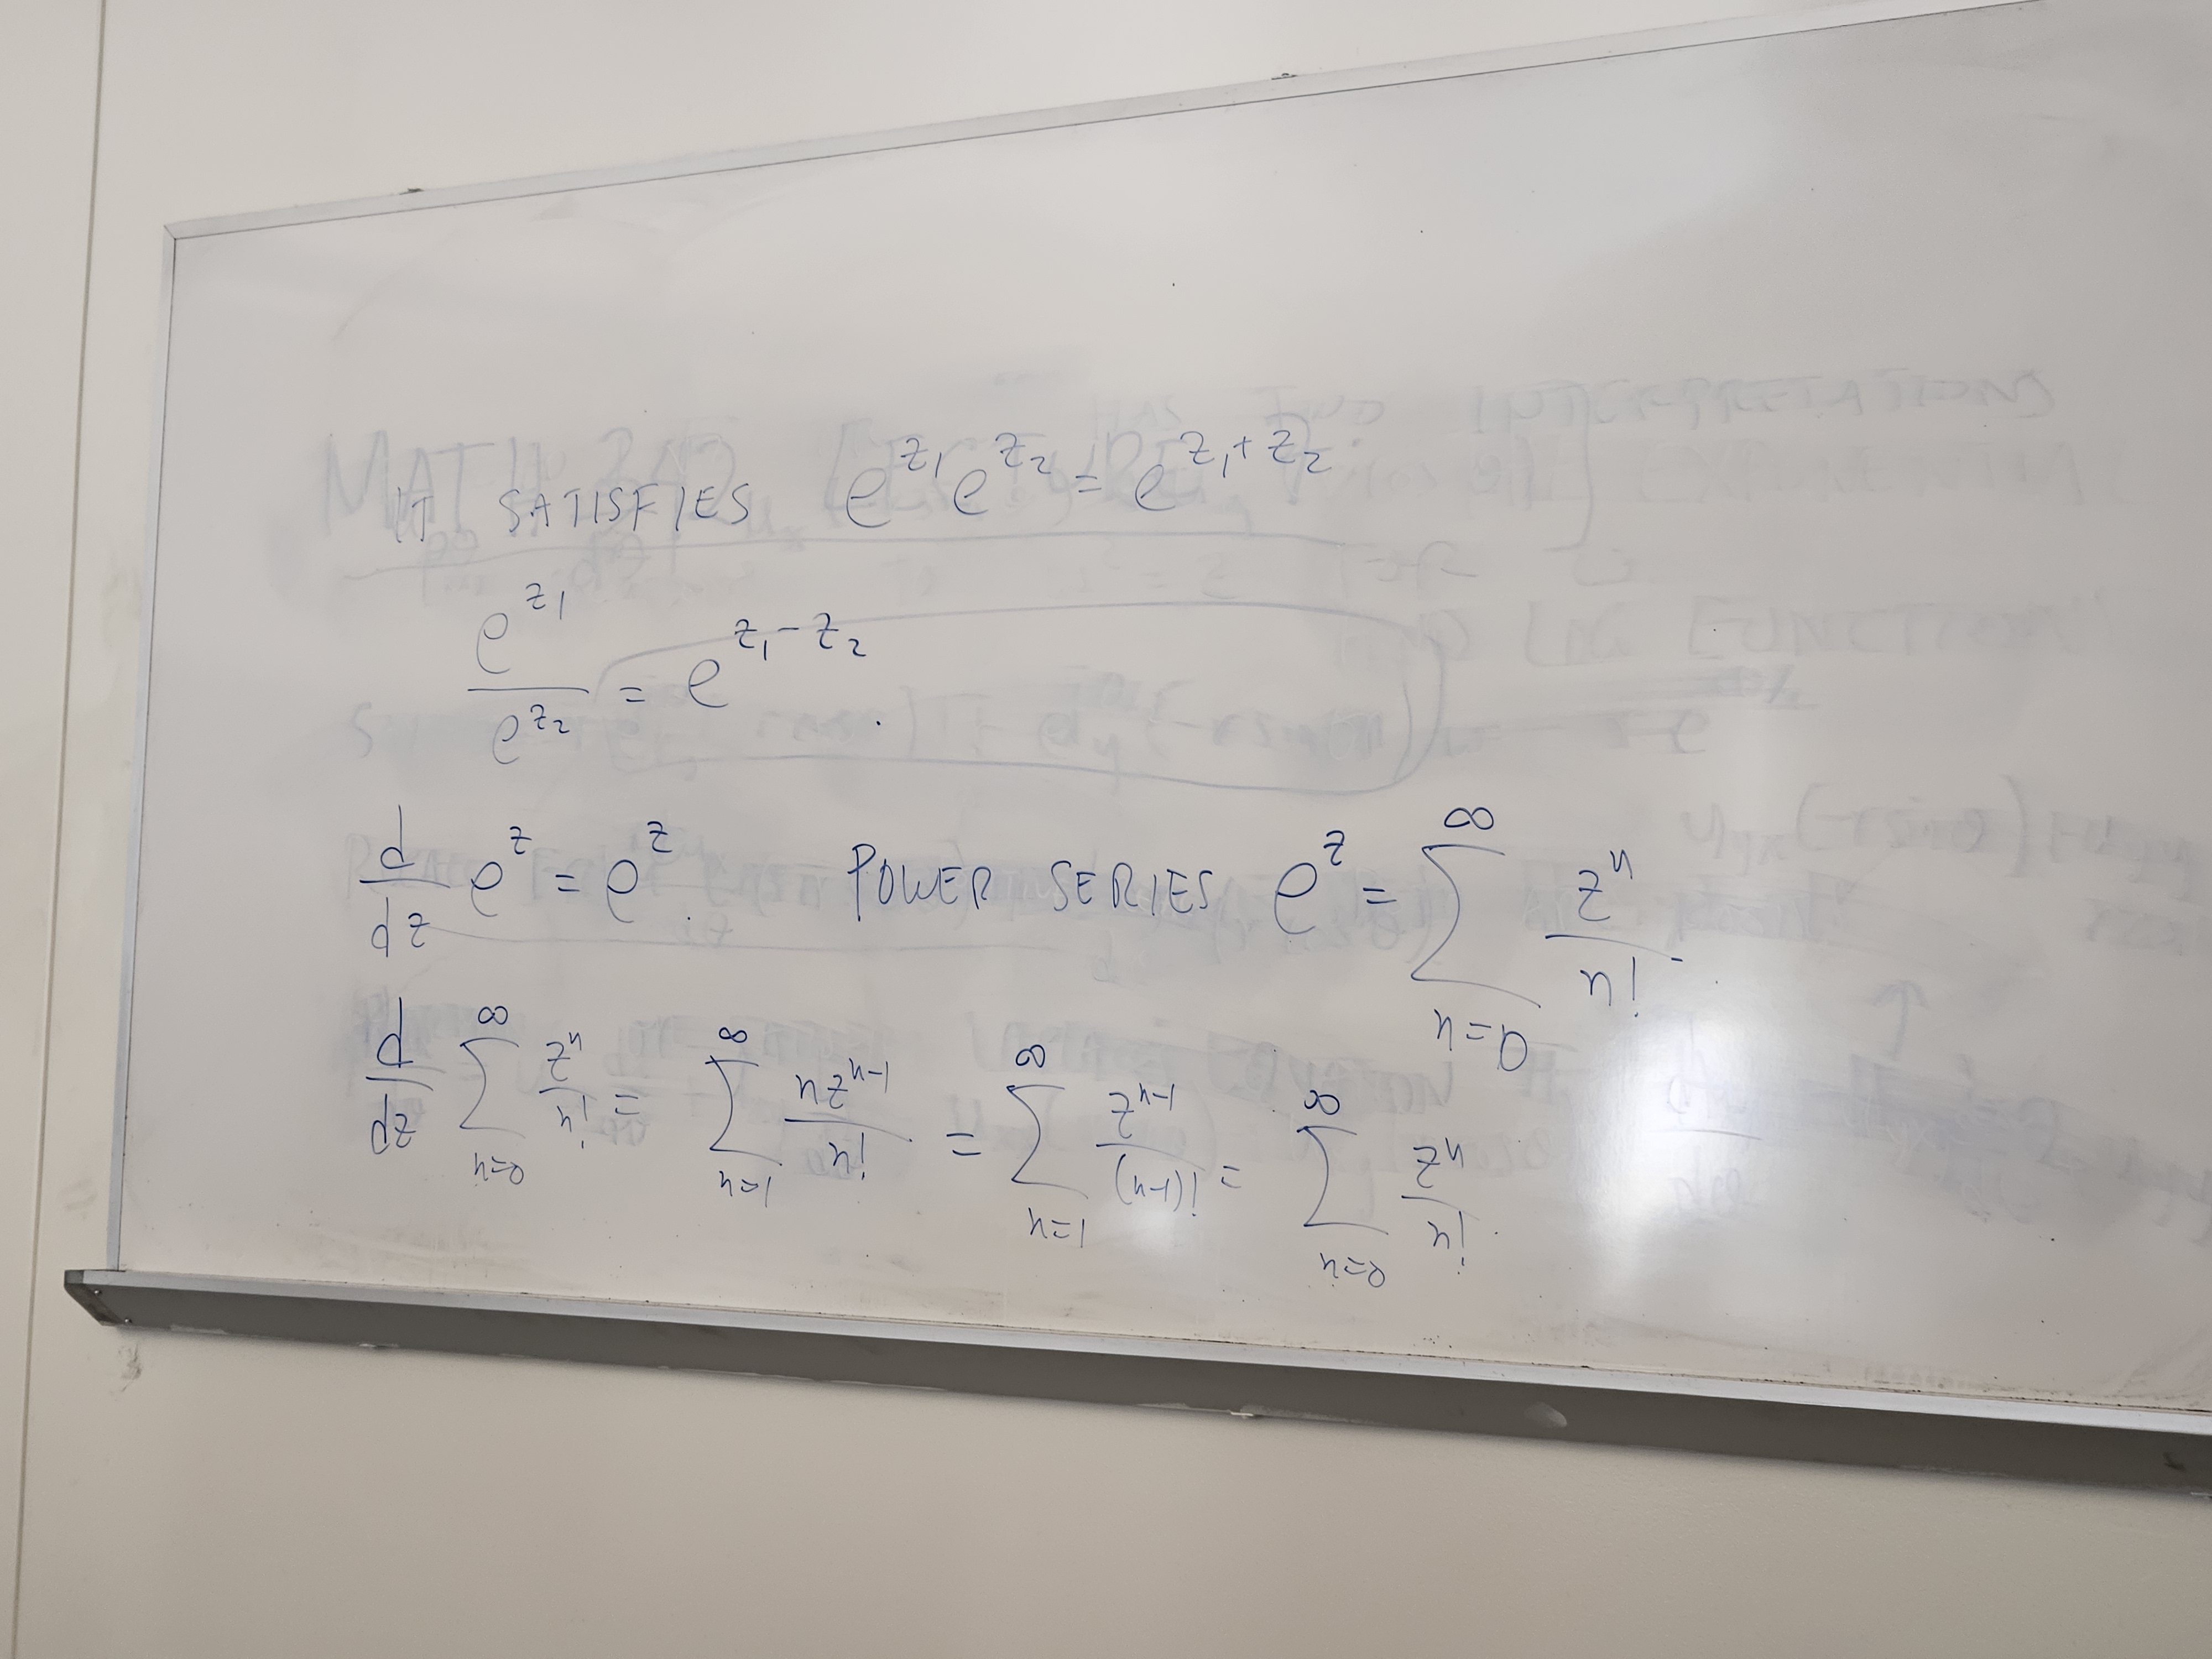 IT SATISFIES e^{z_1} e^{z_2} = e^{z_1 + z_2}
\frac{e^{z_1}}{e^{z_2}} = e^{z_1 - z_2}.
\frac{d}{dz} e^z = e^z. POWER SERIES e^z = \sum_{n=0}^{∞} \frac{z^n}{n!}.
\frac{d}{dz} \sum_{n=0}^{∞} \frac{z^n}{n!} = \sum_{n=1}^{∞} \frac{nz^{n-1}}{n!} = \sum_{n=1}^{∞} \frac{z^{n-1}}{(n-1)!} = \sum_{n=0}^{∞} \frac{z^n}{n!}.